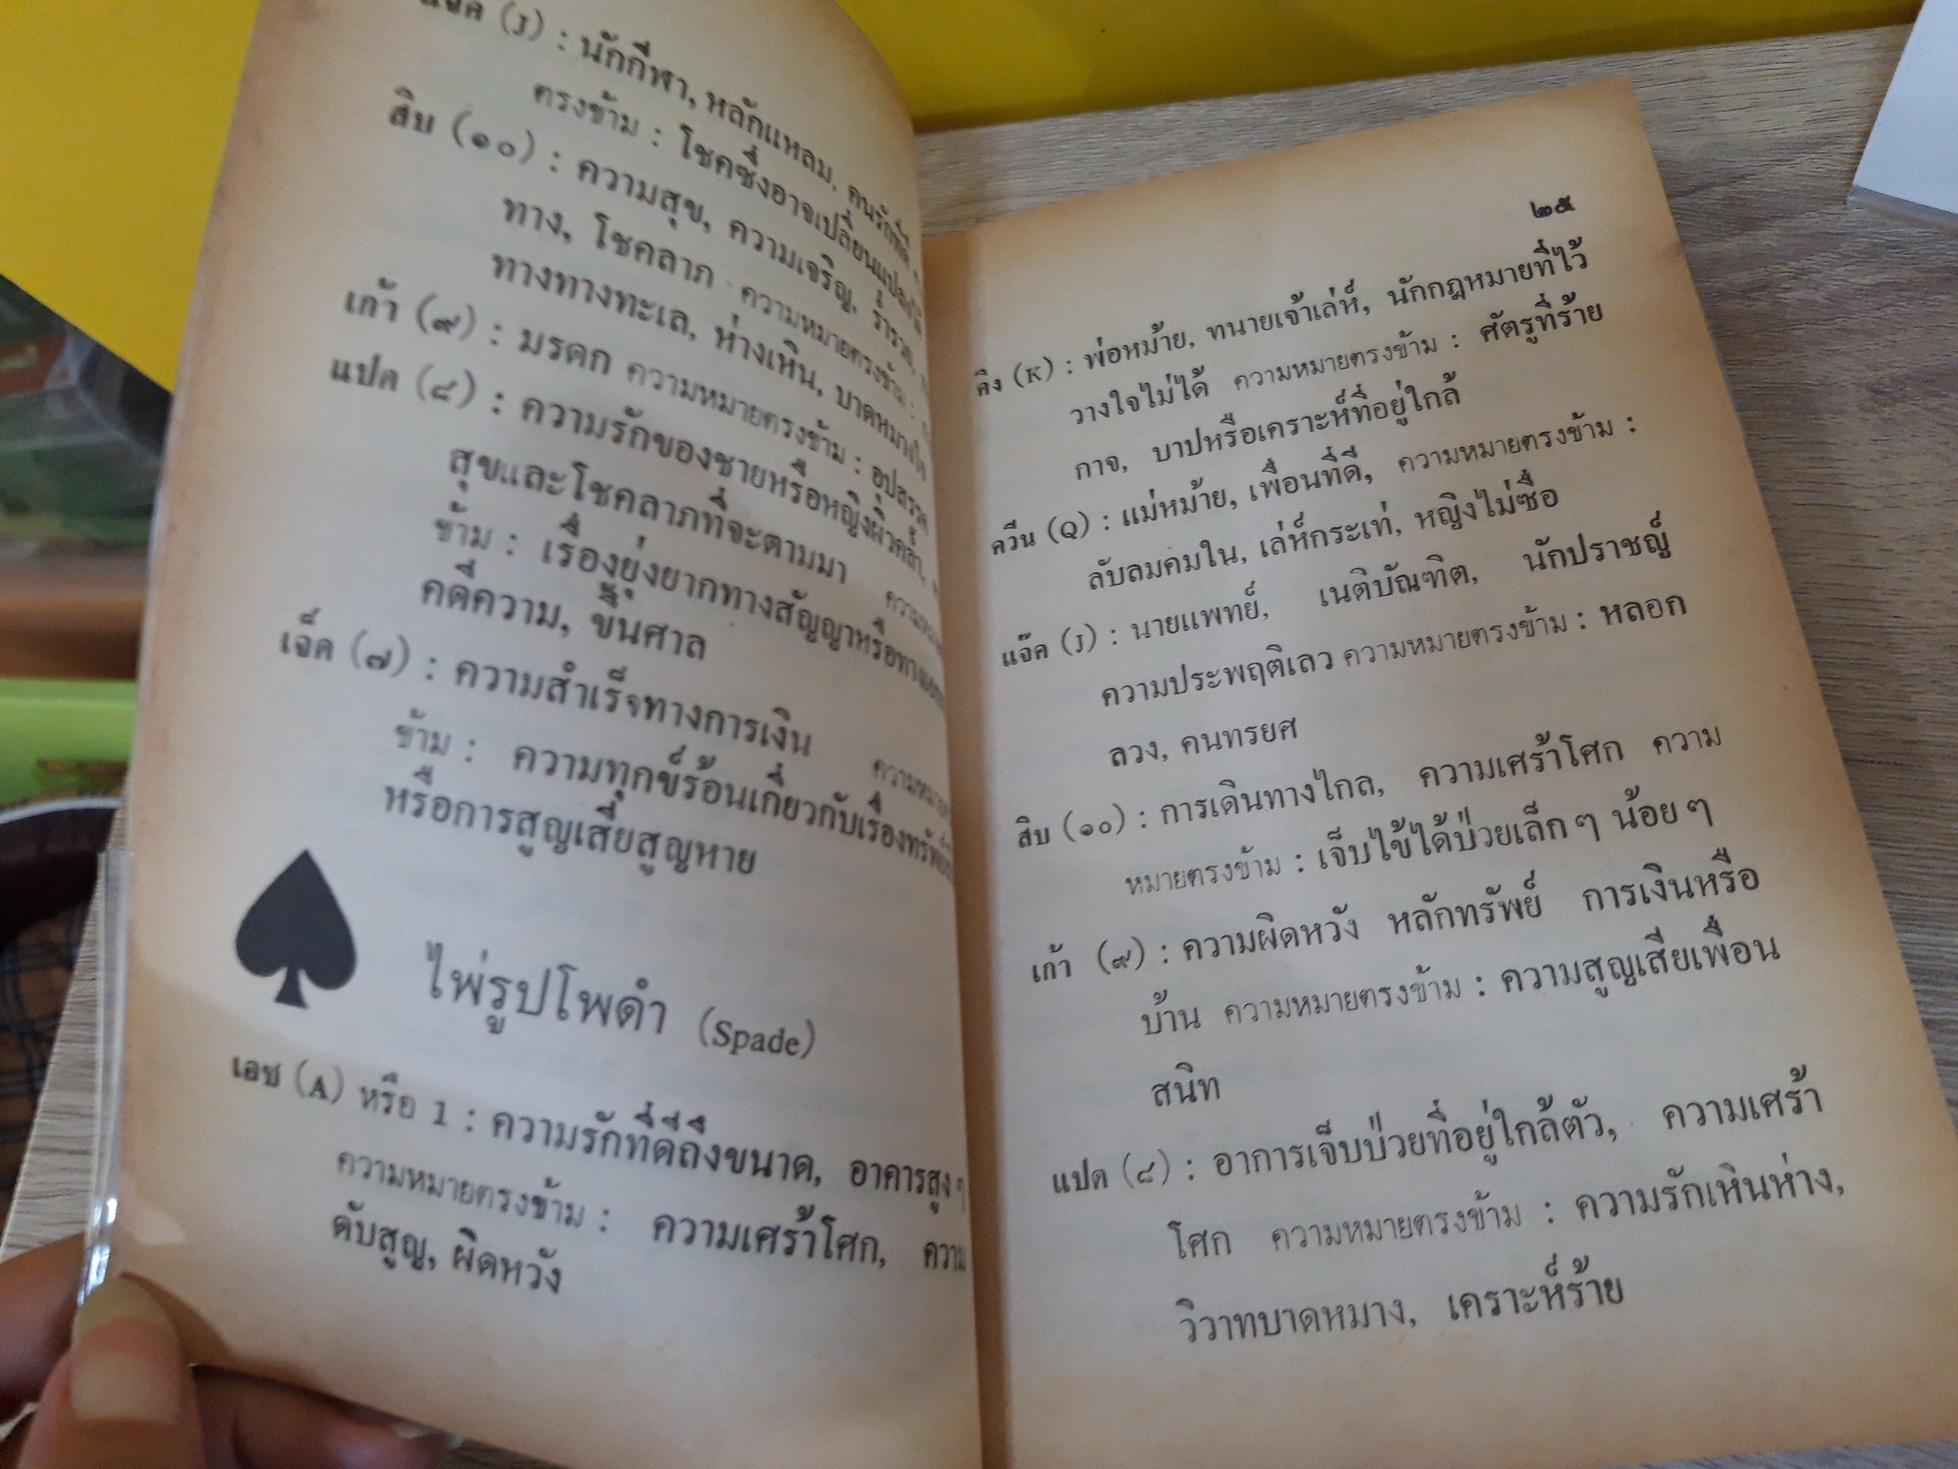 (J) : นักกีฬา, หลักแหลม, คนรักที่ดี
ตรงข้าม : โชคซึ่งอาจเปลี่ยนแปลงได้
สิบ (๑๐) : ความสุข, ความเจริญ, ร่ำรวย,
ทาง, โชคลาภ ความหมายตรงข้าม :
ทางทางทะเล, ห่างเหิน, บาดหมางใจ
เก้า (๙) : มรดก ความหมายตรงข้าม : อุปสรรค
แปด (๘) : ความรักของชายหรือหญิงผิวคล้ำ,
สุขและโชคลาภที่จะตามมา
ข้าม : เรื่องยุ่งยากทางสัญญาหรือทาง
คดีความ, ขึ้นศาล
เจ็ด (๗) : ความสำเร็จทางการเงิน
ข้าม : ความทุกข์ร้อนเกี่ยวกับเรื่อง
หรือการสูญเสียสูญหาย
ไพ่รูปโพดำ (Spade)
เอซ (A) หรือ 1 : ความรักที่ดีถึงขนาด, อาคารสูง ๆ
ความหมายตรงข้าม : ความเศร้าโศก, ความ
ดับสูญ, ผิดหวัง
๒๕
คิง (K) : พ่อหม้าย, ทนายเจ้าเล่ห์, นักกฎหมายที่ไว้
วางใจไม่ได้ ความหมายตรงข้าม : ศัตรูที่ร้าย
กาจ, บาปหรือเคราะห์ที่อยู่ใกล้
ควีน (Q) : แม่หม้าย, เพื่อนที่ดี, ความหมายตรงข้าม :
ลับลมคมใน, เล่ห์กระเท่, หญิงไม่ซื่อ
แจ๊ค (J) : นายแพทย์, เนติบัณฑิต, นักปราชญ์
ความประพฤติเลว ความหมายตรงข้าม : หลอก
ลวง, คนทรยศ
สิบ (๑๐) : การเดินทางไกล, ความเศร้าโศก ความ
หมายตรงข้าม : เจ็บไข้ได้ป่วยเล็ก ๆ น้อย ๆ
เก้า (๙) : ความผิดหวัง หลักทรัพย์ การเงินหรือ
บ้าน ความหมายตรงข้าม : ความสูญเสียเพื่อน
สนิท
แปด (๘) : อาการเจ็บป่วยที่อยู่ใกล้ตัว, ความเศร้า
โศก ความหมายตรงข้าม : ความรักเหินห่าง,
วิวาทบาดหมาง, เคราะห์ร้าย